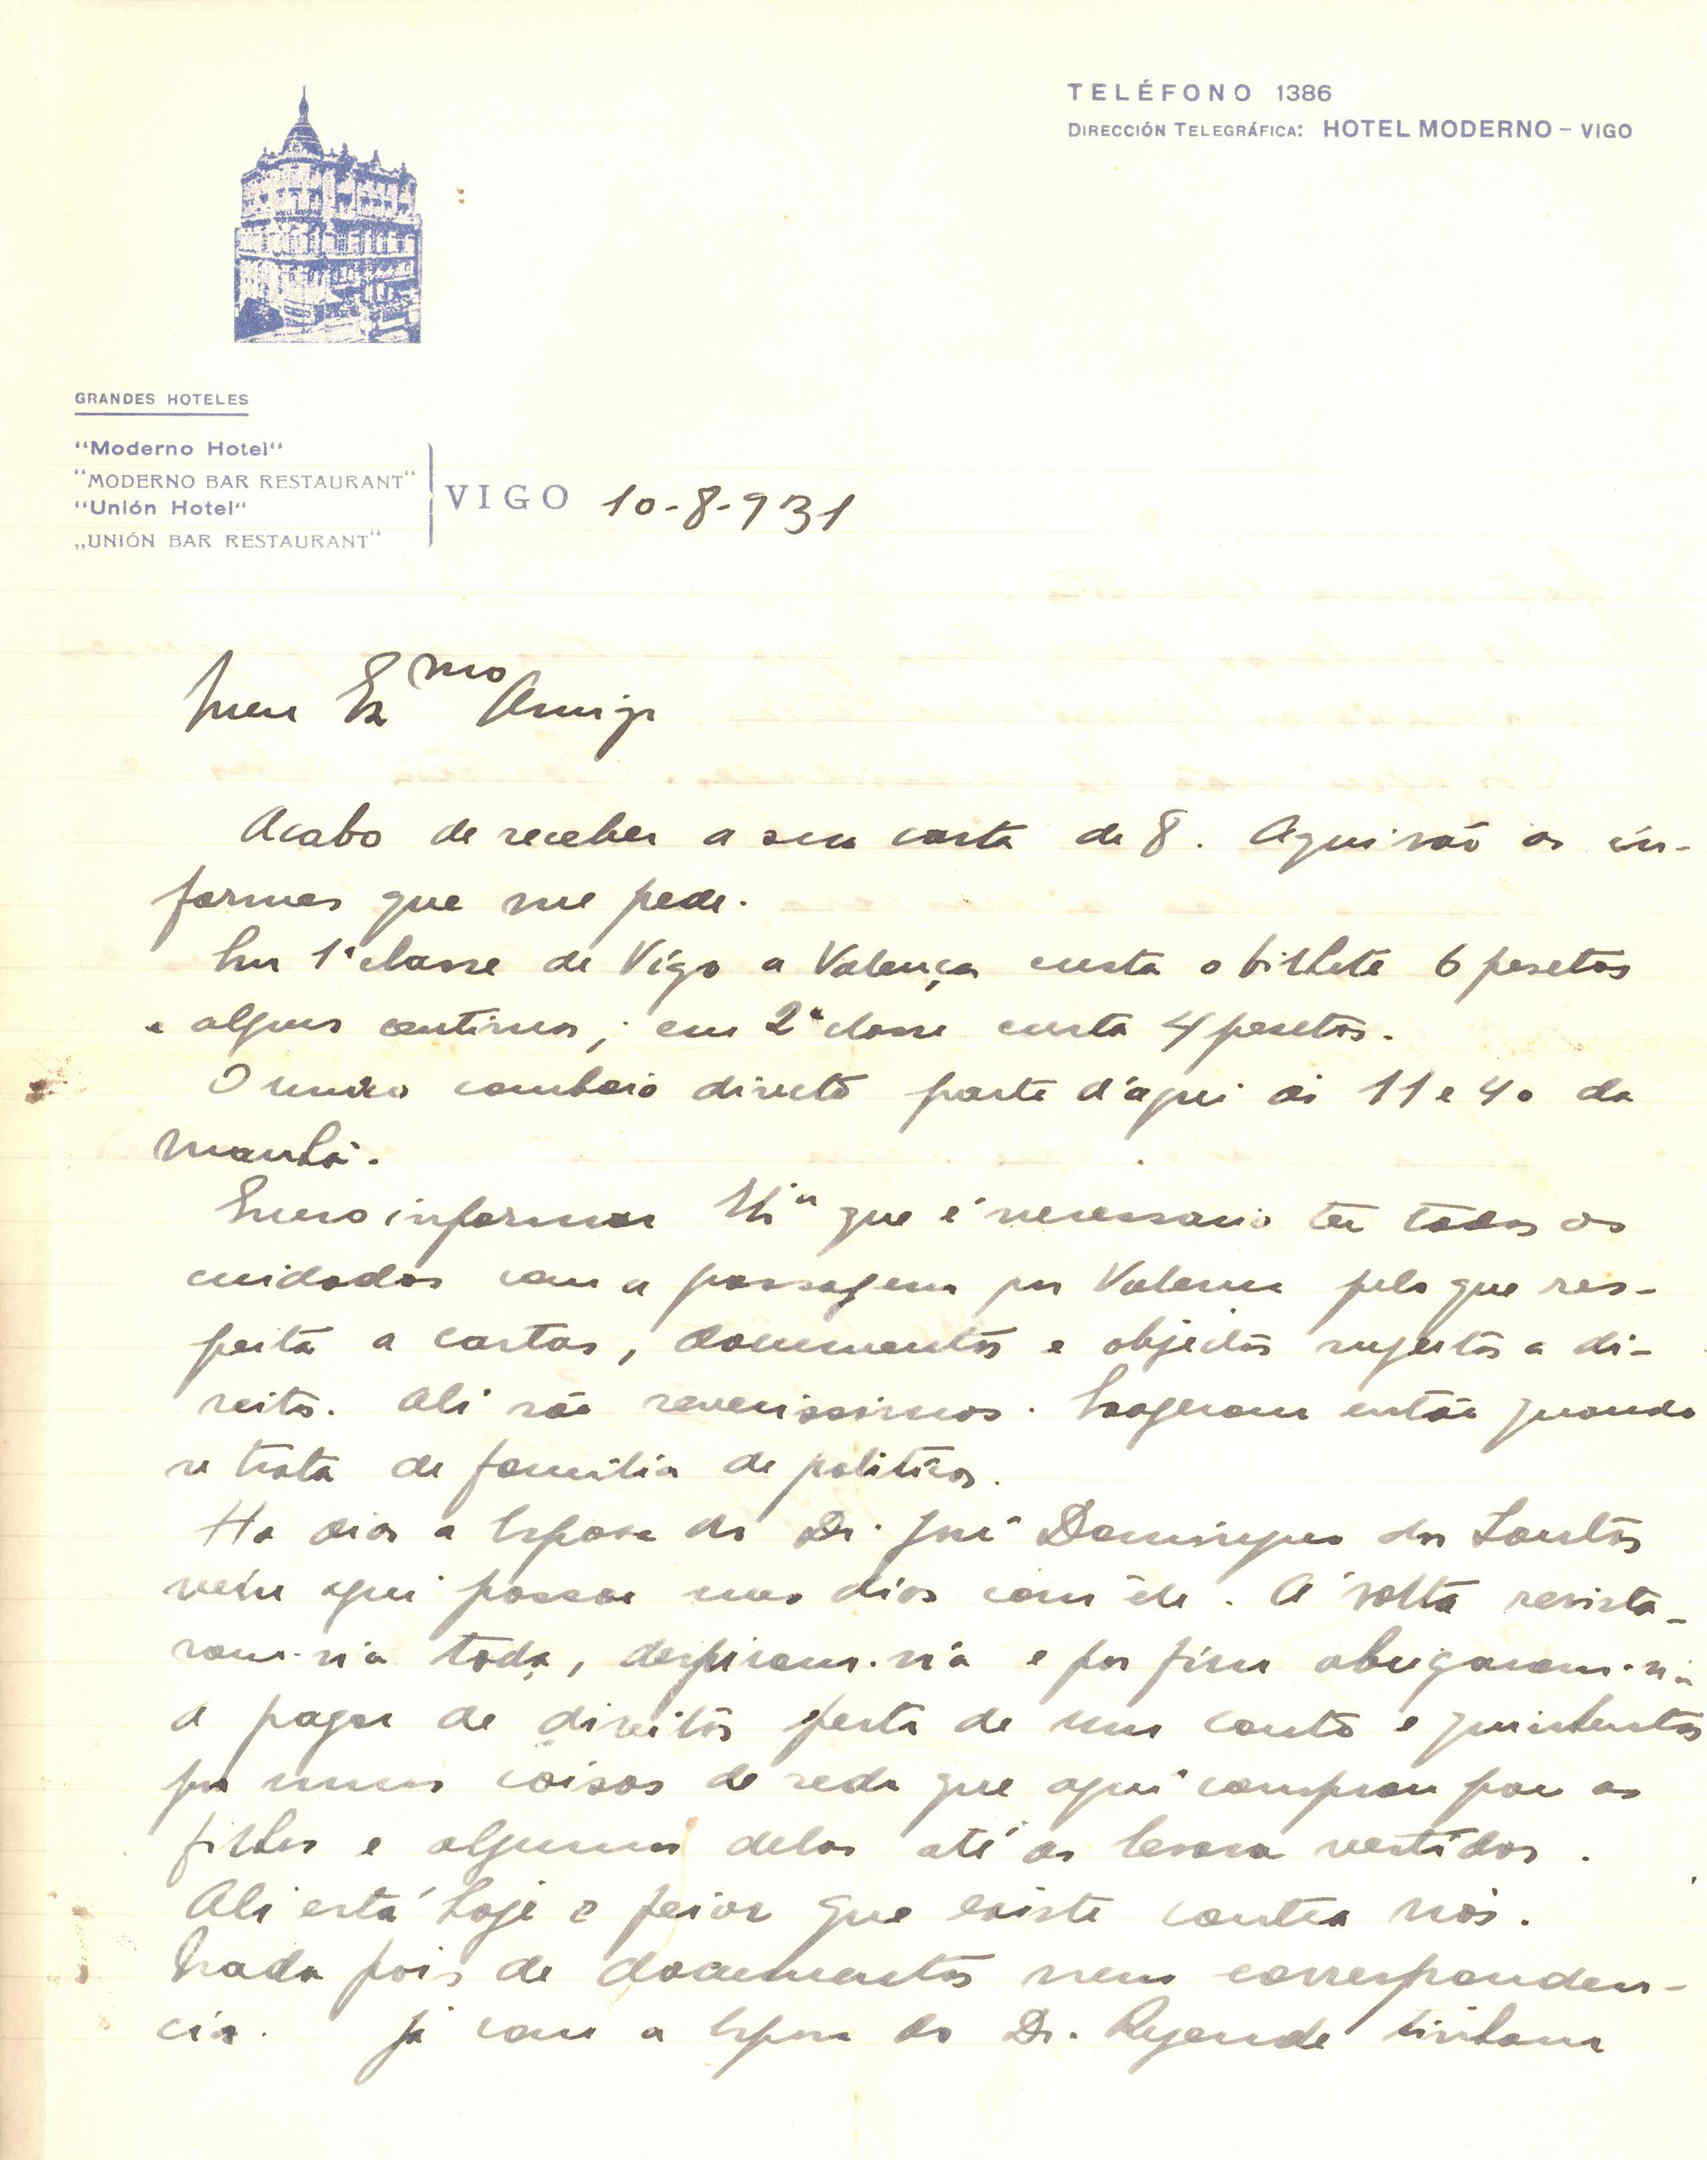 TELÉFONO 1386
DIRECCIÓN TELEGRÁFICA: HOTEL MODERNO - VIGO
GRANDES HOTELES
"Moderno Hotel"
"MODERNO BAR RESTAURANT"
"Unión Hotel"
„UNIÓN BAR RESTAURANT"
VIGO 10-8-931
Meu Exmo Amigo
Acabo de receber a sua carta de 8. Aqui vão os in-
formes que me pede.
Em 1ª classe de Vigo a Valença custa o bilhete 6 pesetas
e alguns centimos; em 2ª classe custa 4 pesetas.
O unico comboio directo parte d'aqui ás 11 e 40 da
manhã.
informar que é necessario ter todos os
cuidados com a passagem por Valença pelo que res-
peita a cartas, documentos e objectos sujeitos a di-
reitos. Ali são severissimos. Exageram então quando
se trata de familia de politicos.
Ha dias a Esposa do Dr. José Domingues dos Santos
veiu aqui passar uns dias com êle. Á volta revista-
ram-n'a toda, despiram-n'a e por fim obrigaram-n'a
a pagar de direitos perto de um conto e quinhentos
por umas coisas de seda que aqui comprou para os
filhos e algumas delas até as levava vestidas.
Ali está hoje o peior que existe contra nós.
Nada pois de documentos nem corresponden-
cia. Já com a Esposa do Dr. Rezende tinham